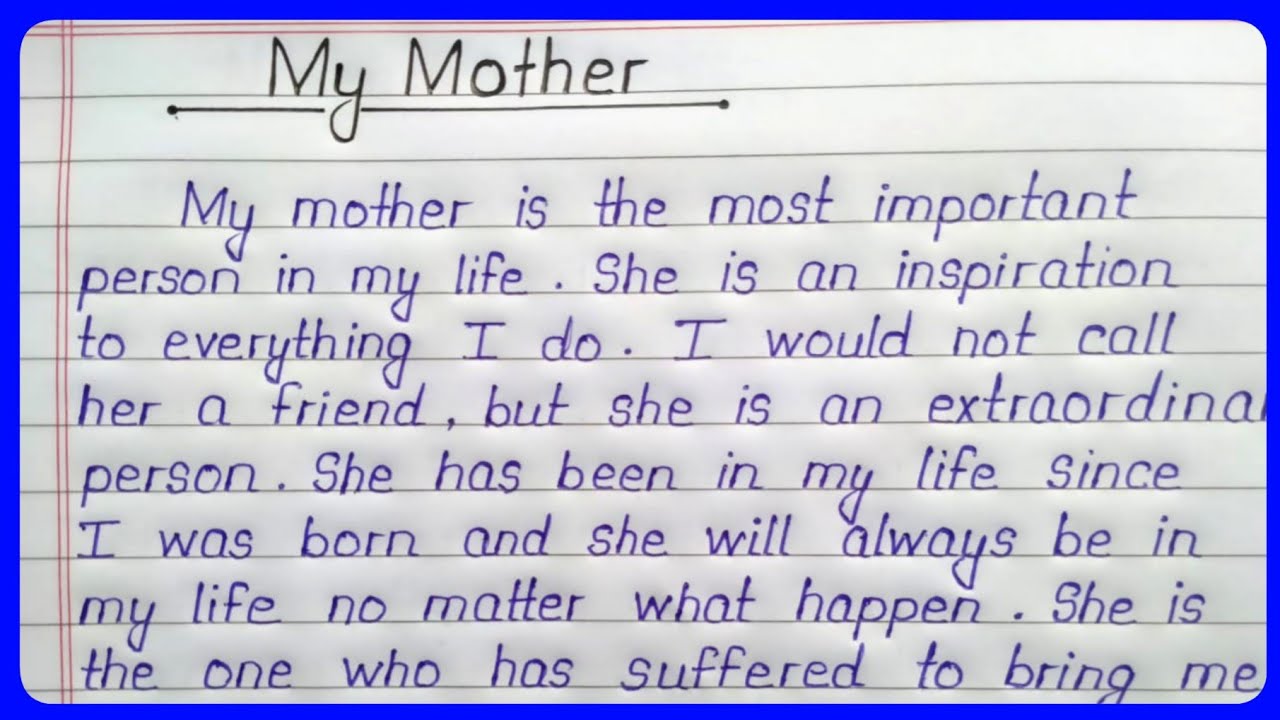 My Mother
My mother is the most important
person in my life. She is an inspiration
to everything I do. I would not call
her a friend, but she is an extraordina
person. She has been in my life since
I was born and she will always be in
my life no matter what happen. She is
the one who has suffered to bring me